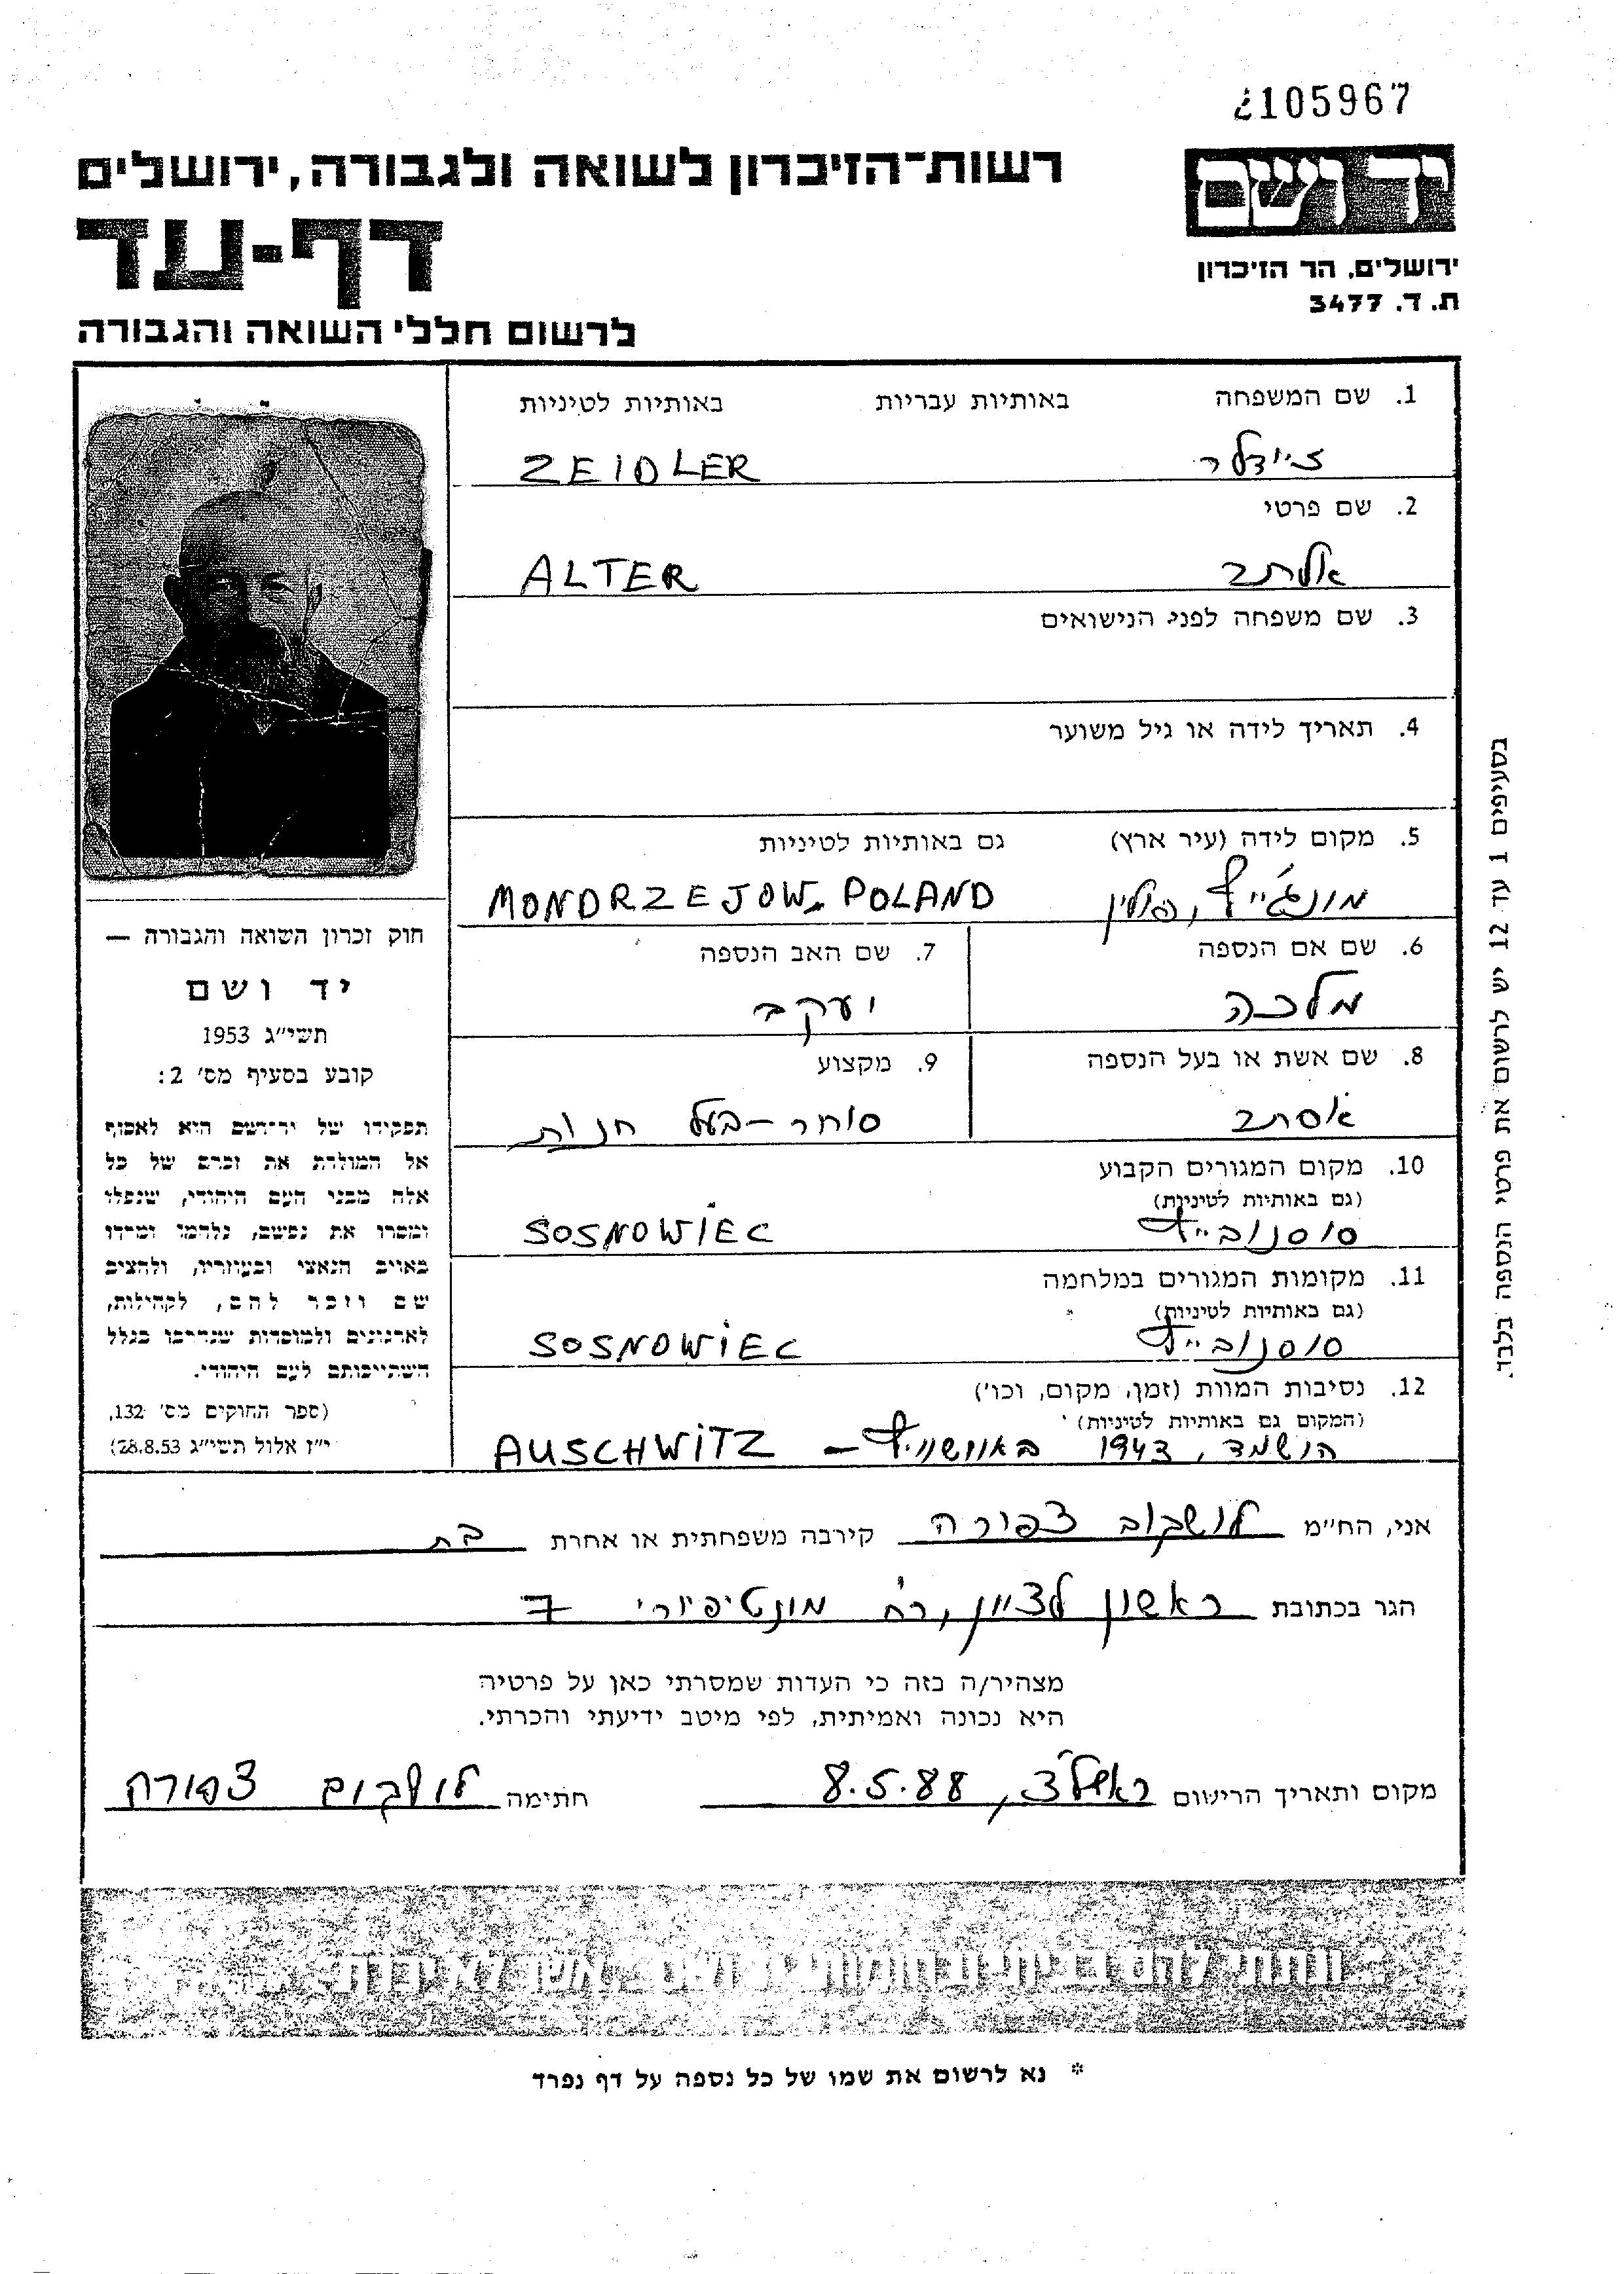 2105967
יד ושם
רשות־הזיכרון לשואה ולגבורה, ירושלים
דף-עד
ירושלים, הר הזיכרון
ת. ד. 3477
לרשום חללי השואה והגבורה
1. שם המשפחה באותיות עבריות באותיות לטיניות
ציידלר ZEIDLER
2. שם פרטי
אלתר ALTER
3. שם משפחה לפני הנישואים
4. תאריך לידה או גיל משוער
5. מקום לידה (עיר ארץ) גם באותיות לטיניות
פולין MONDRZEJOW, POLAND
6. שם אם הנספה 7. שם האב הנספה
מלכה יעקב
8. שם אשת או בעל הנספה 9. מקצוע
אסתר סוחר – בעל חנות
10. מקום המגורים הקבוע
(גם באותיות לטיניות)
סוסנובייץ SOSNOWIEC
11. מקומות המגורים במלחמה
(גם באותיות לטיניות)
סוסנובייץ SOSNOWIEC
12. נסיבות המוות (זמן, מקום, וכו')
(המקום גם באותיות לטיניות)
הושמד, 1943 באוושוויץ – AUSCHWITZ
חוק זכרון השואה והגבורה —
יד ושם
תשי״ג 1953
קובע בסעיף מס׳ 2:
תפקידו של יד־ושם היא לאסוף
אל המולדת את זכרם של כל
אלה מבני העם היהודי, שנפלו
ומסרו את נפשם, נלחמו ומרדו
באויב הנאצי ובעוזריו, ולהציב
שם וזכר להם, לקהילות,
לארגונים ולמוסדות שנחרבו בגלל
השתייכותם לעם היהודי.
(ספר החוקים מס׳ 132,
י״ז אלול תשי״ג 28.8.53)
בסעיפים 1 עד 12 יש לרשום את פרטי הנספה בלבד.
אני, הח״מ צפורה קירבה משפחתית או אחרת בת
הגר בכתובת ראשון לציון, רח' מונטיפיורי 7
מצהיר/ה בזה כי העדות שמסרתי כאן על פרטיה
היא נכונה ואמיתית, לפי מיטב ידיעתי והכרתי.
מקום ותאריך הרישום ראשל"צ, 8.5.88 חתימה צפורה
ונתתי להם בביתי ובחומותי יד ושם... אשר לא יכרת
* נא לרשום את שמו של כל נספה על דף נפרד